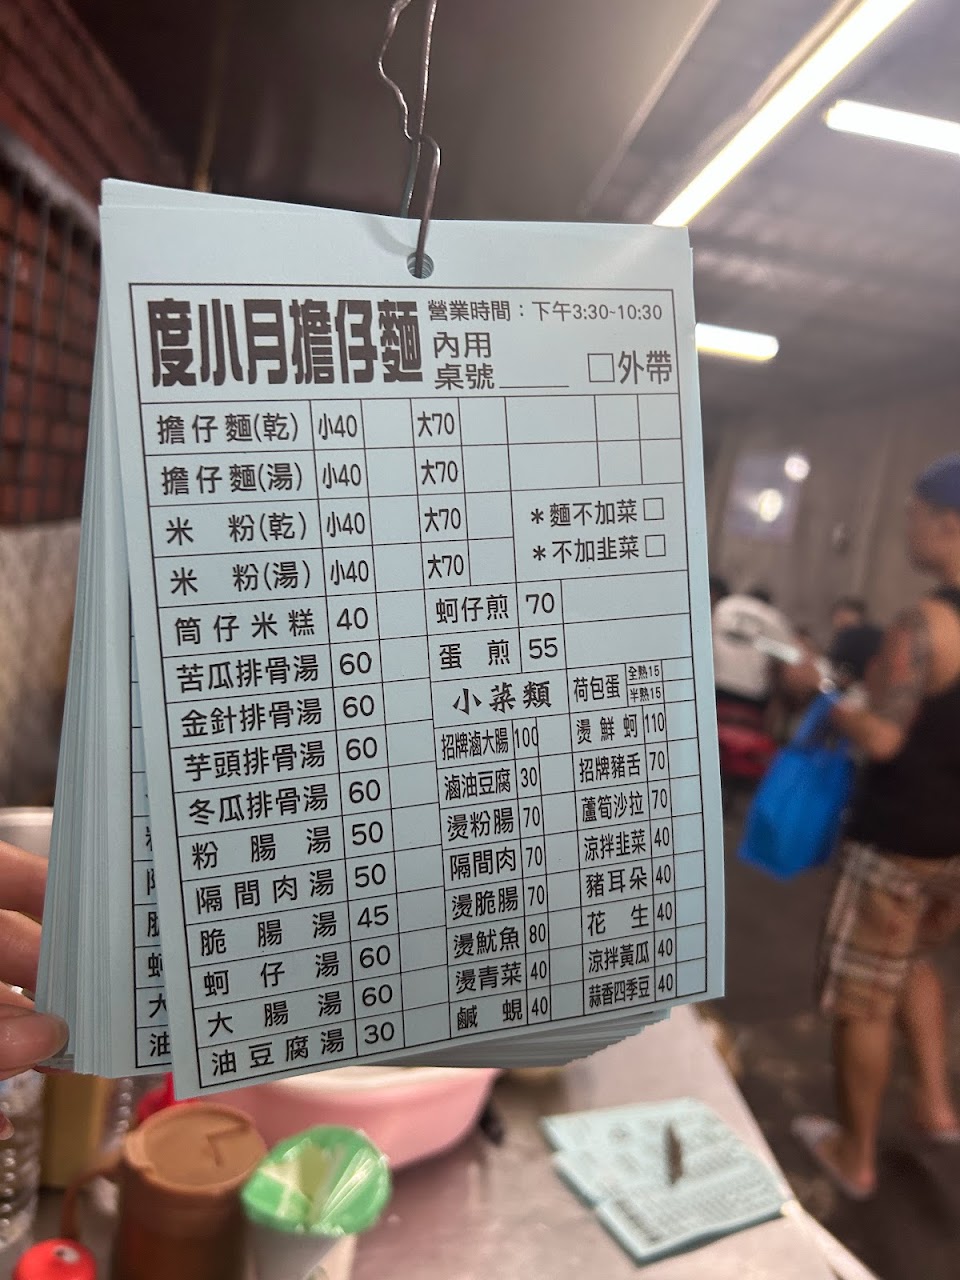 度小月擔仔麵
營業時間：下午3:30~10:30
內用
桌號______ □外帶
擔仔麵(乾) 小40 大70
擔仔麵(湯) 小40 大70
米粉(乾) 小40 大70
米粉(湯) 小40 大70
＊麵不加菜□
＊不加韭菜□
筒仔米糕 40
苦瓜排骨湯 60
金針排骨湯 60
芋頭排骨湯 60
冬瓜排骨湯 60
粉腸湯 50
隔間肉湯 50
脆腸湯 45
蚵仔湯 60
大腸湯 60
油豆腐湯 30
蚵仔煎 70
蛋煎 55
小菜類
招牌滷大腸 100
滷油豆腐 30
燙粉腸 70
隔間肉 70
燙脆腸 70
燙魷魚 80
燙青菜 40
鹹蜆 40
荷包蛋 全熟15 半熟15
燙鮮蚵 110
招牌豬舌 70
蘆筍沙拉 70
涼拌韭菜 40
豬耳朵 40
花生 40
涼拌黃瓜 40
蒜香四季豆 40